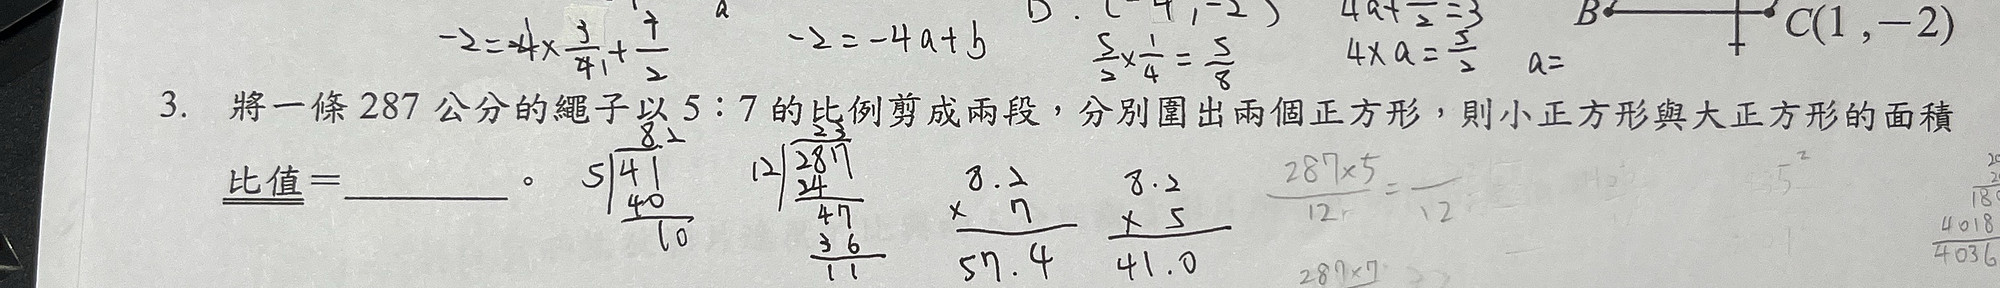 -2=-4×3/4+7/2
-2=-4a+b
5/2×1/4=5/8
4×a=5/2
a=
B
C(1,-2)
3. 將一條 287 公分的繩子以 5:7 的比例剪成兩段,分別圍出兩個正方形,則小正方形與大正方形的面積
比值=________。
8.2
5 41
40
10
23
12 287
24
47
36
11
8.2
× 7
57.4
8.2
× 5
41.0
287×5/12= /12
287×7
4018
4036